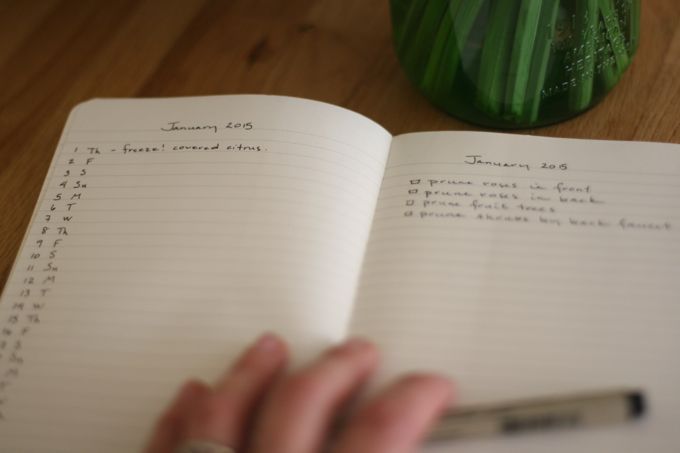 January 2015
1 Th - freeze! covered citrus.
2 F
3 S
4 Su
5 M
6 T
7 W
8 Th
9 F
10 S
11 Su
12 M
13 T
14 W
15 Th
16 F
S
Su
M
January 2015
prune roses in front
prune roses in back
prune fruit trees
prune shrubs by back faucet
MADE IN